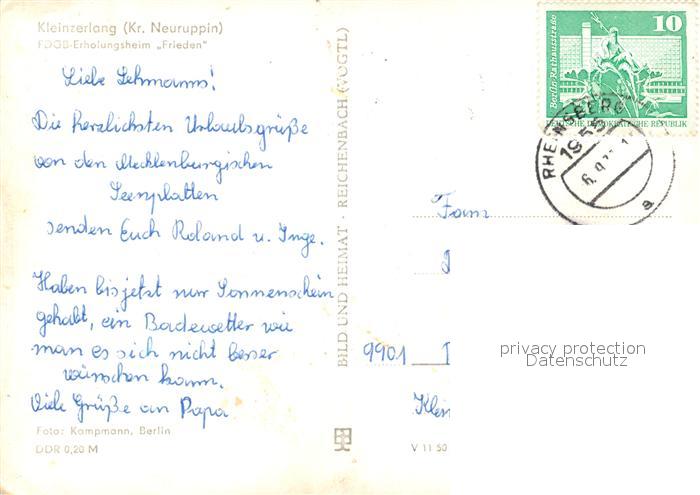 Kleinzerlang (Kr. Neuruppin)
FDGB-Erholungsheim „Frieden"
Liebe Lehmanns!
Die herzlichsten Urlaubsgrüße
von den Mecklenburgischen
Seenplatten
senden Euch Roland u. Inge.
Haben bis jetzt nur Sonnenschein
gehabt, ein Badewetter wie
man es sich nicht besser
wünschen kann.
Viele Grüße an Papa
Foto: Kampmann, Berlin
DDR 0,20 M
BILD UND HEIMAT · REICHENBACH (VOGTL)
V 11 50
10
Berlin, Rathausstraße
DEUTSCHE DEMOKRATISCHE REPUBLIK
RHEINSBERG
1955
a
Fam
9901
Klei
privacy protection
Datenschutz